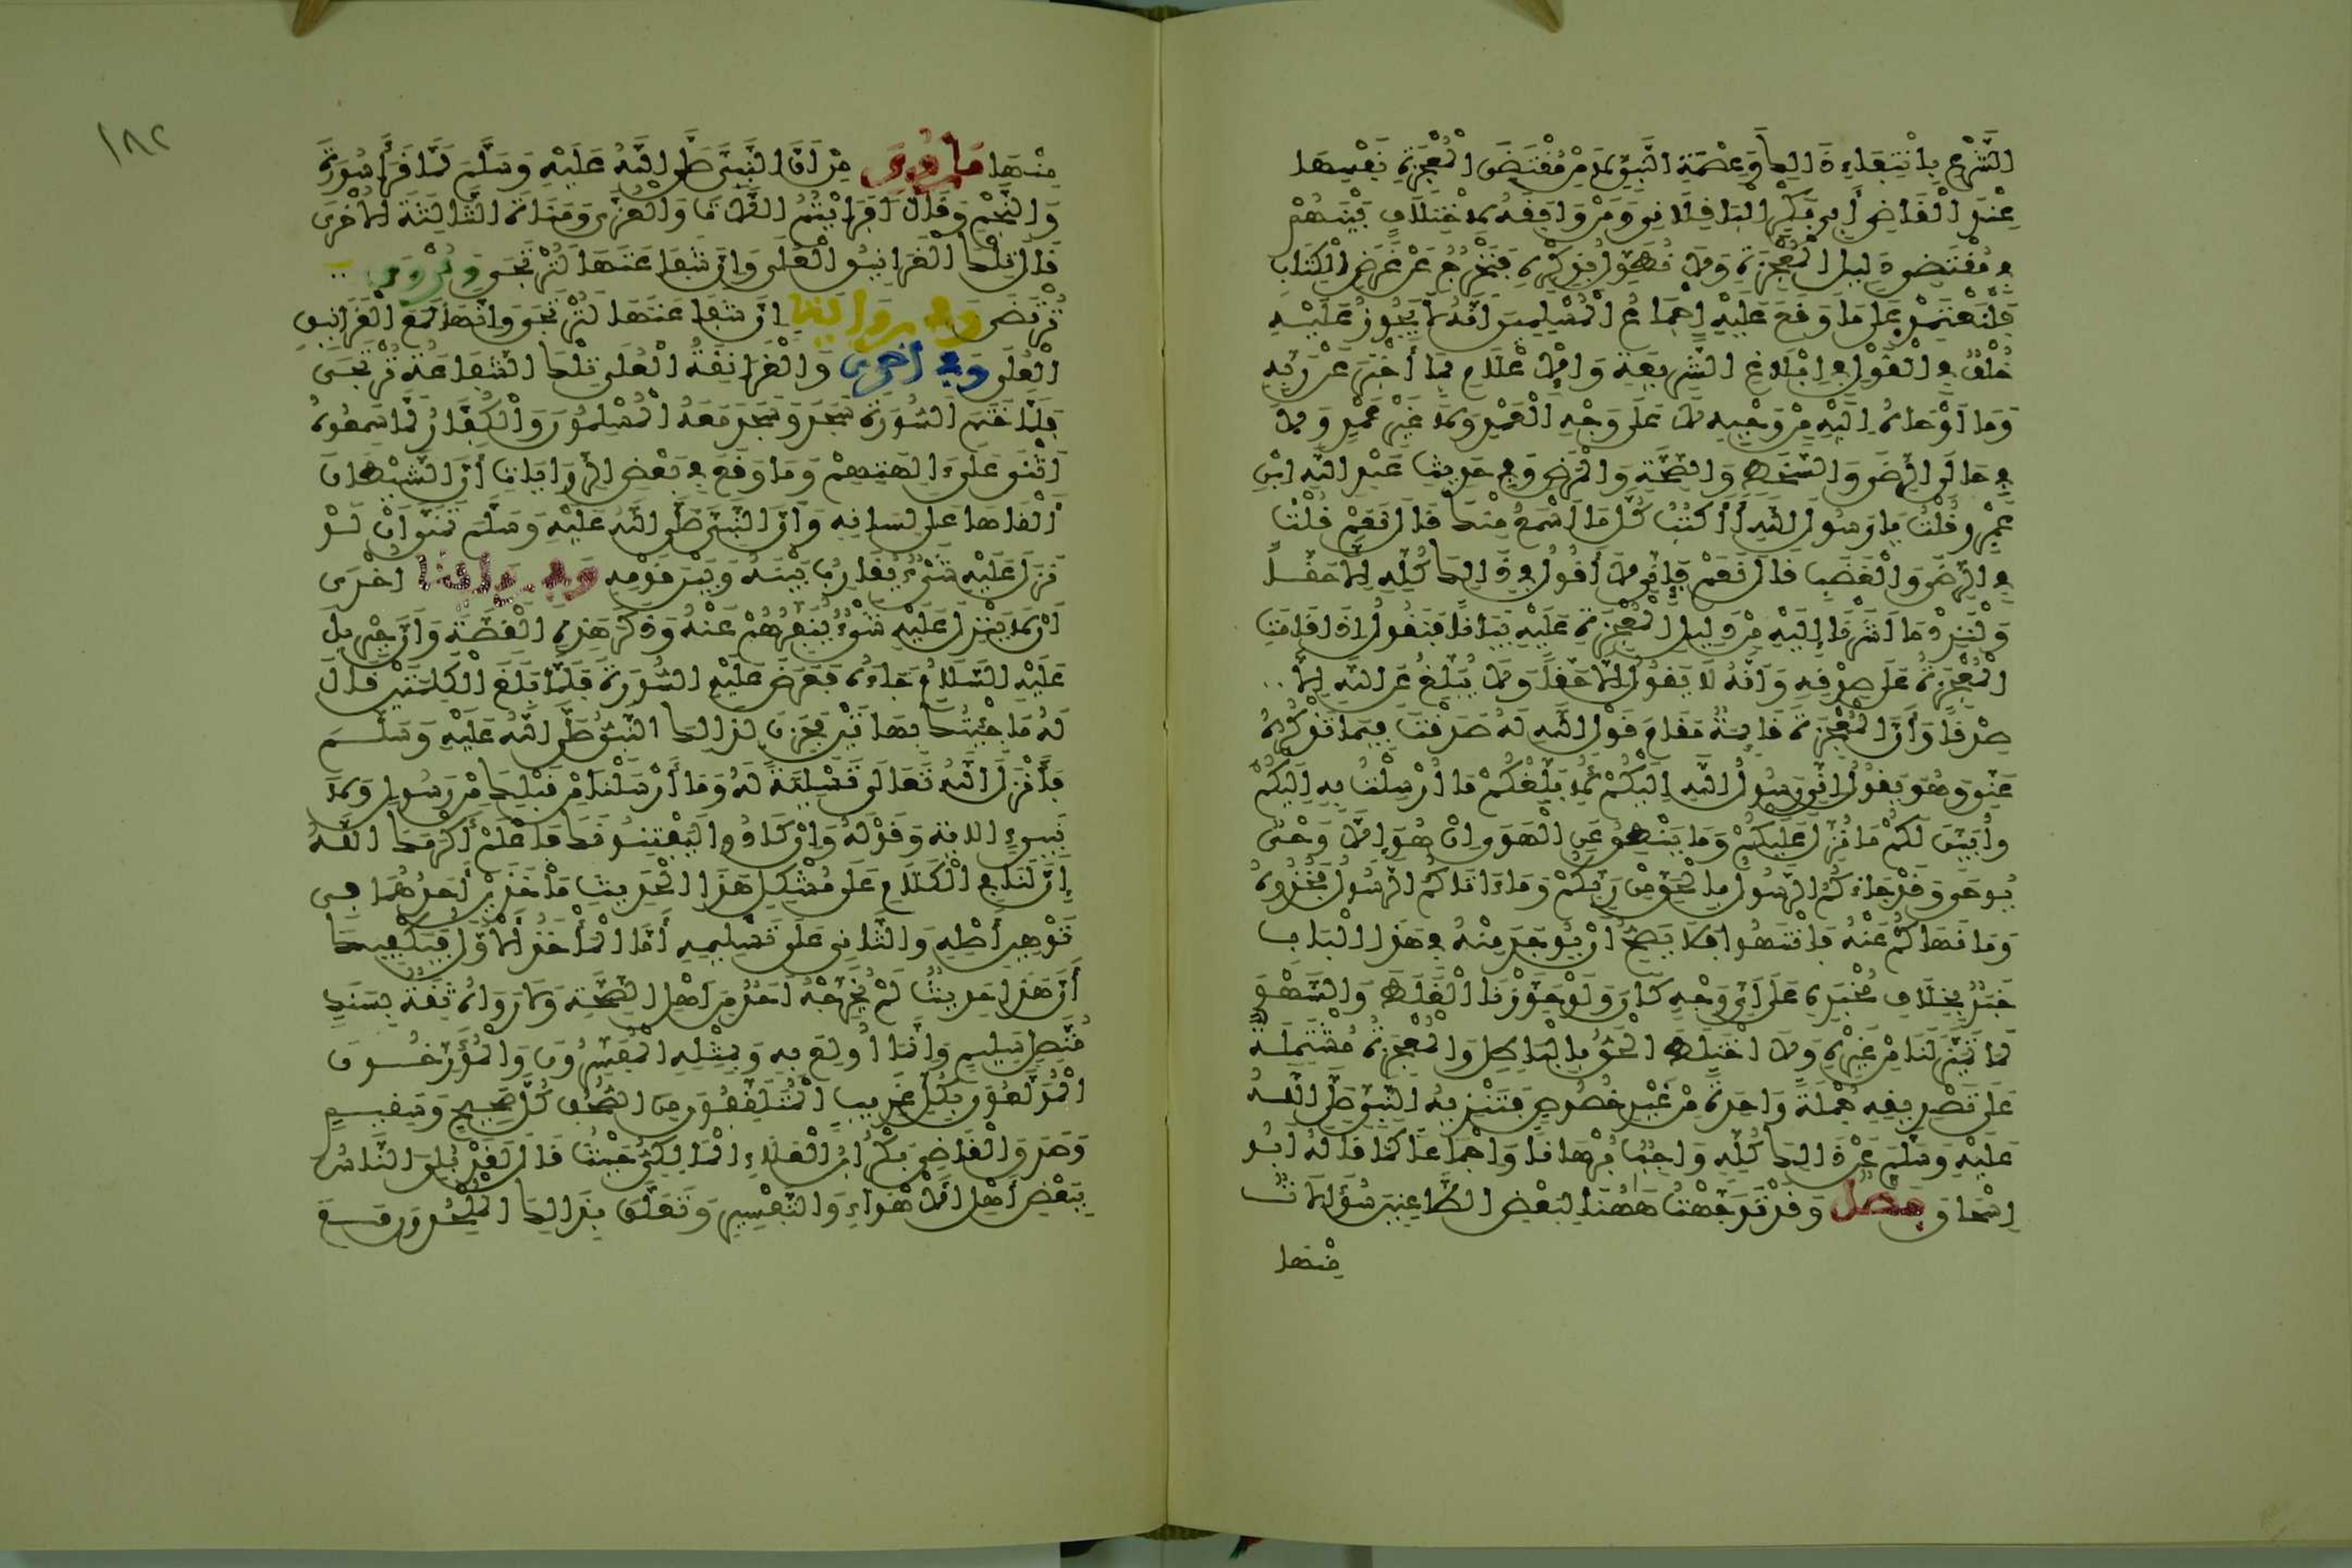 الشَّرْعِ بِانْتِفَاءِ ذَالِكَ وَعِصْمَةِ النَّبِيِّ لَا مِنْ مُقْتَضَى الْمُعْجِزَةِ نَفْسِهَا
عِنْدَ الْقَاضِي أَبِي بَكْرٍ الْبَاقِلَّانِي وَمَنْ وَافَقَهُ لِاخْتِلَافٍ بَيْنَهُمْ
فِي مُقْتَضَى دَلِيلِ الْمُعْجِزَةِ وَلَا نُطَوِّلُ بِذِكْرِهِ فَنَخْرُجُ عَنْ غَرَضِ الْكِتَابِ
فَلْنَعْتَمِدْ عَلَى مَا وَقَعَ عَلَيْهِ إِجْمَاعُ الْمُسْلِمِينَ أَنَّهُ لَا يَجُوزُ عَلَيْهِ
خُلْفٌ فِي الْقَوْلِ فِي إِبْلَاغِ الشَّرِيعَةِ وَالْإِعْلَامِ بِمَا أَخْبَرَ عَنْ رَبِّهِ
وَمَا أَوْحَاهُ إِلَيْهِ مِنْ وَحْيِهِ لَا عَلَى وَجْهِ الْعَمْدِ وَلَا غَيْرِ عَمْدٍ وَلَا
فِي حَالَيِ الرِّضَى وَالسَّخَطِ وَالصِّحَّةِ وَالْمَرَضِ وَفِي حَدِيثِ عَبْدِ اللَّهِ ابْنِ
عَمْرٍو قُلْتُ يَا رَسُولَ اللَّهِ أَأَكْتُبُ كُلَّ مَا أَسْمَعُ مِنْكَ قَالَ نَعَمْ قُلْتُ
فِي الرِّضَى وَالْغَضَبِ قَالَ نَعَمْ فَإِنِّي لَا أَقُولُ فِي ذَالِكَ كُلِّهِ إِلَّا حَقًّا
وَلْنَزِدْ مَا أَشَرْنَا إِلَيْهِ مِنْ دَلِيلِ الْمُعْجِزَةِ عَلَيْهِ بَيَانًا فَنَقُولُ إِذَا قَامَتِ
الْمُعْجِزَةُ عَلَى صِدْقِهِ وَأَنَّهُ لَا يَقُولُ إِلَّا حَقًّا وَلَا يُبَلِّغُ عَنِ اللَّهِ إِلَّا
صِدْقًا وَأَنَّ الْمُعْجِزَةَ قَائِمَةٌ مَقَامَ قَوْلِ اللَّهِ لَهُ صَدَقْتَ فِيمَا تَذْكُرُهُ
عَنِّي وَهُوَ يَقُولُ إِنِّي رَسُولُ اللَّهِ إِلَيْكُمْ لِأُبَلِّغَكُمْ مَا أُرْسِلْتُ بِهِ إِلَيْكُمْ
وَأُبَيِّنَ لَكُمْ مَا نُزِّلَ عَلَيْكُمْ وَمَا يَنْطِقُ عَنِ الْهَوَى إِنْ هُوَ إِلَّا وَحْيٌ
يُوحَى وَقَدْ جَاءَكُمُ الرَّسُولُ بِالْحَقِّ مِنْ رَبِّكُمْ وَمَا ءَاتَاكُمُ الرَّسُولُ فَخُذُوهُ
وَمَا نَهَاكُمْ عَنْهُ فَانْتَهُوا فَلَا يَصِحُّ أَنْ يُوجَدَ مِنْهُ فِي هَذَا الْبَابِ
خَبَرٌ بِخِلَافِ مُخْبَرِهِ عَلَى أَيِّ وَجْهٍ كَانَ وَلَوْ جَوَّزْنَا الْغَلَطَ وَالسَّهْوَ
لَمَا تَمَيَّزَ لَنَا مِنْ غَيْرِهِ وَلَا اخْتَلَطَ الْحَقُّ بِالْبَاطِلِ وَالْمُعْجِزَةُ مُشْتَمِلَةٌ
عَلَى تَصْدِيقِهِ جُمْلَةً وَاحِدَةً مِنْ غَيْرِ خُصُوصٍ فَتَنْزِيهُ النَّبِيِّ صَلَّى اللَّهُ
عَلَيْهِ وَسَلَّمَ عَنْ ذَالِكَ كُلِّهِ وَاجِبٌ بُرْهَانًا وَإِجْمَاعًا كَمَا قَالَهُ أَبُو
إِسْحَاقَ فصل وَقَدْ تَوَجَّهْتُ هَهُنَا لِبَعْضِ الطَّاعِنِينَ سُؤَالَاتٌ
مِنْهَا
١٨٢
مِنْهَا مَا رُوِيَ مِنْ أَنَّ النَّبِيَّ صَلَّى اللَّهُ عَلَيْهِ وَسَلَّمَ لَمَّا قَرَأَ سُورَةَ
وَالنَّجْمِ وَقَالَ أَفَرَأَيْتُمُ اللَّاتَ وَالْعُزَّى وَمَنَاةَ الثَّالِثَةَ الْأُخْرَى
قَالَ تِلْكَ الْغَرَانِيقُ الْعُلَى وَإِنَّ شَفَاعَتَهَا لَتُرْتَجَى وَيُرْوَى
تُرْتَضَى وَفِي رِوَايَةٍ إِنَّ شَفَاعَتَهَا لَتُرْتَجَى وَإِنَّهَا لَمَعَ الْغَرَانِيقِ
الْعُلَى وَفِي أُخْرَى وَالْغَرَانِقَةُ الْعُلَى تِلْكَ الشَّفَاعَةُ تُرْتَجَى
فَلَمَّا خَتَمَ السُّورَةَ سَجَدَ وَسَجَدَ مَعَهُ الْمُسْلِمُونَ وَالْكُفَّارُ لَمَّا سَمِعُوهُ
أَثْنَى عَلَى ءَالِهَتِهِمْ وَمَا وَقَعَ فِي بَعْضِ الرِّوَايَاتِ أَنَّ الشَّيْطَانَ
أَلْقَاهَا عَلَى لِسَانِهِ وَأَنَّ النَّبِيَّ صَلَّى اللَّهُ عَلَيْهِ وَسَلَّمَ تَمَنَّى أَنْ لَوْ
نَزَلَ عَلَيْهِ شَيْءٌ يُقَارِبُ بَيْنَهُ وَبَيْنَ قَوْمِهِ وَفِي رِوَايَةٍ أُخْرَى
أَنْ لَا يَنْزِلَ عَلَيْهِ شَيْءٌ يُنَفِّرُهُمْ عَنْهُ وَذَكَرَ هَذِهِ الْقِصَّةَ وَأَنَّ جِبْرِيلَ
عَلَيْهِ السَّلَامُ جَاءَهُ فَعَرَضَ عَلَيْهِ السُّورَةَ فَلَمَّا بَلَغَ الْكَلِمَتَيْنِ قَالَ
لَهُ مَا جِئْتُكَ بِهَاتَيْنِ فَحَزِنَ لِذَالِكَ النَّبِيُّ صَلَّى اللَّهُ عَلَيْهِ وَسَلَّمَ
فَأَنْزَلَ اللَّهُ تَعَالَى تَسْلِيَةً لَهُ وَمَا أَرْسَلْنَا مِنْ قَبْلِكَ مِنْ رَسُولٍ وَلَا
نَبِيءٍ الاية وَقَوْلَهُ وَإِنْ كَادُوا لَيَفْتِنُونَكَ فَاعْلَمْ أَكْرَمَكَ اللَّهُ
إِنَّ لَنَا فِي الْكَلَامِ عَلَى مُشْكِلِ هَذَا الْحَدِيثِ مَأْخَذَيْنِ أَحَدُهُمَا فِي
تَوْهِينِ أَصْلِهِ وَالثَّانِي عَلَى تَسْلِيمِهِ أَمَّا الْمَأْخَذُ الْأَوَّلُ فَيَكْفِيكَ
أَنَّ هَذَا حَدِيثٌ لَمْ يُخَرِّجْهُ أَحَدٌ مِنْ أَهْلِ الصِّحَّةِ وَلَا رَوَاهُ ثِقَةٌ بِسَنَدٍ
مُتَّصِلٍ سَلِيمٍ وَإِنَّمَا أُولِعَ بِهِ وَبِمِثْلِهِ الْمُفَسِّرُونَ وَالْمُؤَرِّخُونَ
الْمُولَعُونَ بِكُلِّ غَرِيبٍ الْمُتَلَقِّفُونَ مِنَ الصُّحُفِ كُلَّ صَحِيحٍ وَسَقِيمٍ
وَصَدَقَ الْقَاضِي بَكْرُ ابْنُ الْعَلَاءِ الْمَالِكِيُّ حَيْثُ قَالَ لَقَدْ بُلِيَ النَّاسُ
بِبَعْضِ أَهْلِ الْأَهْوَاءِ وَالتَّفْسِيرِ وَتَعَلَّقَ بِذَالِكَ الْمُلْحِدُونَ مَعَ